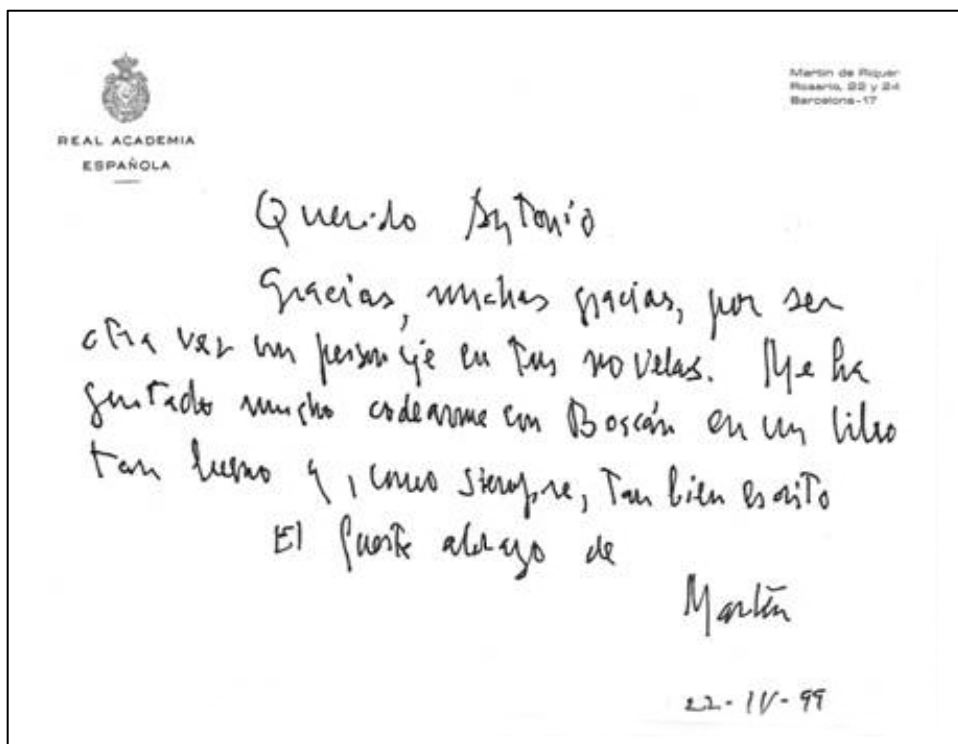 REAL ACADEMIA
ESPAÑOLA
Martín de Riquer
Rosario, 22 y 24
Barcelona-17
Querido Antonio
Gracias, muchas gracias, por ser
otra vez un personaje en tus novelas. Me ha
gustado mucho codearme con Boscán en un libro
tan bueno y, como siempre, tan bien escrito
El fuerte abrazo de
Martín
22-IV-99